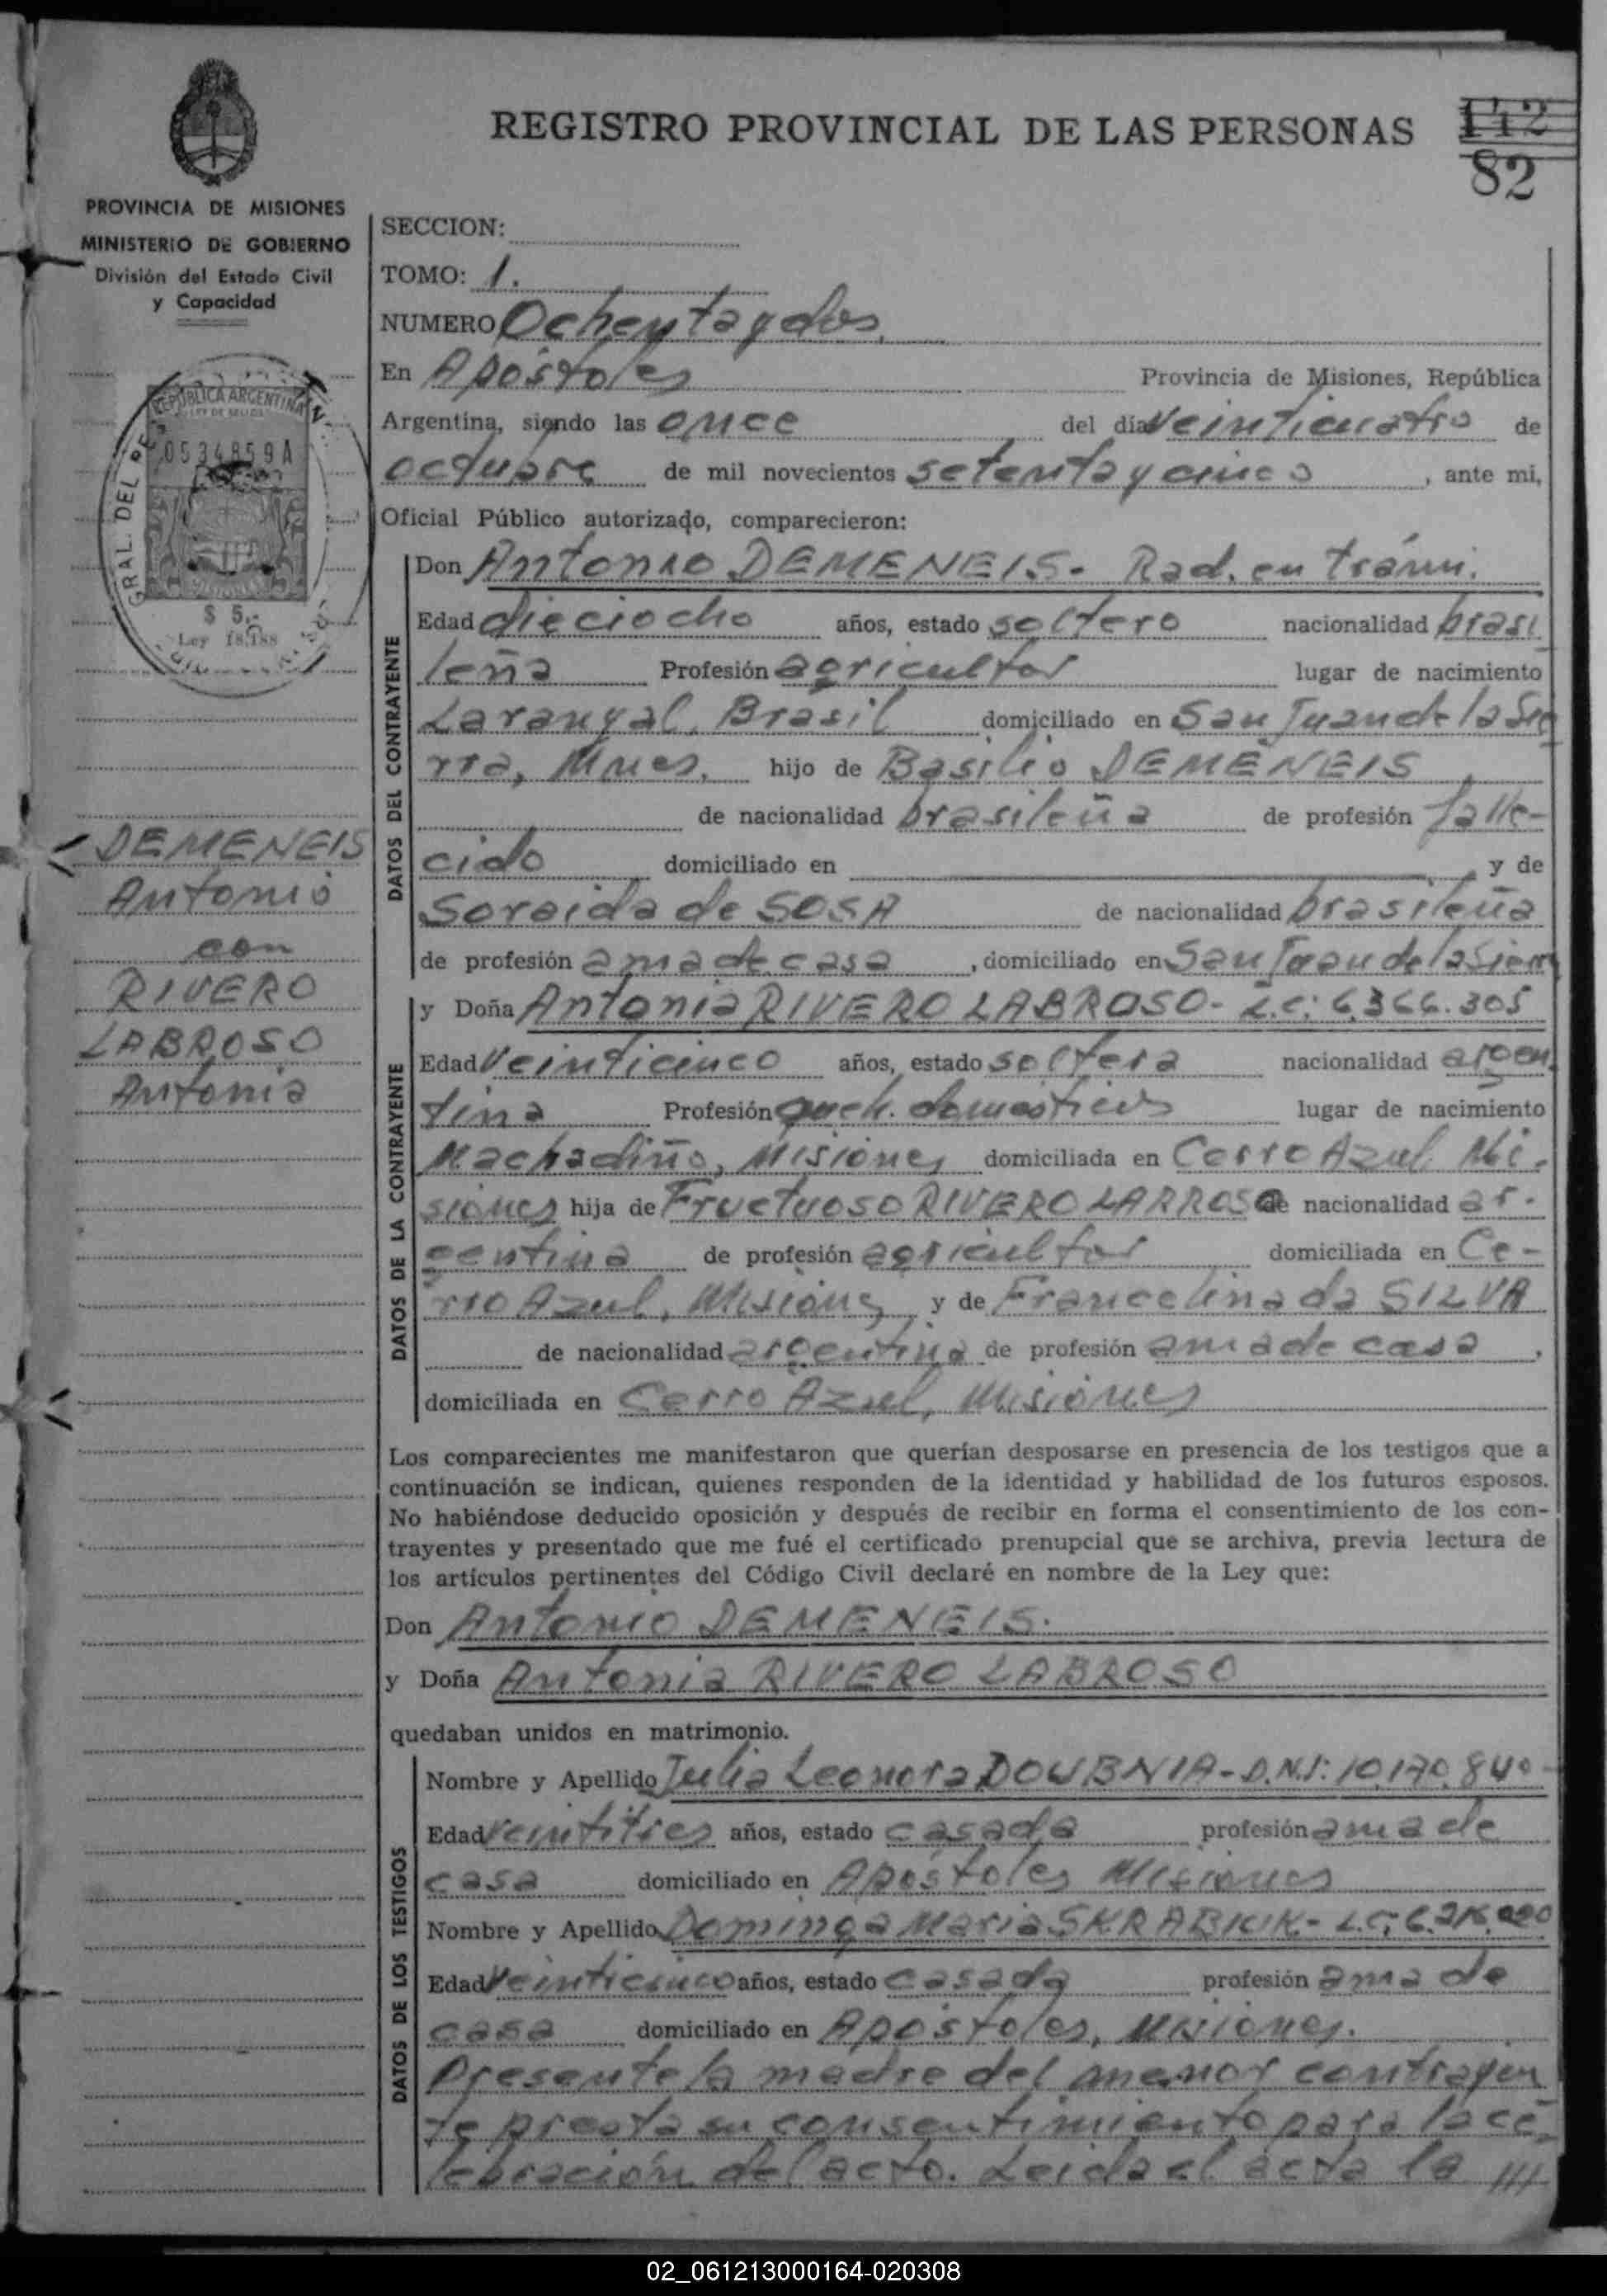 REGISTRO PROVINCIAL DE LAS PERSONAS
142
82
PROVINCIA DE MISIONES
MINISTERIO DE GOBIERNO
División del Estado Civil
y Capacidad
REPUBLICA ARGENTINA
LEY DE SELLOS
0534859A
GRAL. DEL RE
$ 5.-
Ley 18.188
DEMENEIS
Antonio
con
RIVERO
LABROSO
Antonia
SECCION:
TOMO: 1.
NUMERO Ochenta y dos
En Apóstoles Provincia de Misiones, República
Argentina, siendo las once del día veinticuatro de
octubre de mil novecientos setenta y cinco, ante mi,
Oficial Público autorizado, comparecieron:
DATOS DEL CONTRAYENTE
Don Antonio DEMENEIS. Rad. en trámi.
Edad dieciocho años, estado soltero nacionalidad brasi
leña Profesión agricultor lugar de nacimiento
Laranyal, Brasil domiciliado en San Juan de la Sie
rra, Mnes. hijo de Basilio DEMENEIS
de nacionalidad brasileña de profesión falle-
cido domiciliado en y de
Soraida de SOSA de nacionalidad brasileña
de profesión ama de casa, domiciliado en San Juan de la Sierra
DATOS DE LA CONTRAYENTE
y Doña Antonia RIVERO LABROSO- L.C: 6.366.305
Edad veinticinco años, estado soltera nacionalidad argen
tina Profesión queh. domésticos lugar de nacimiento
Machadiño, Misiones domiciliada en Cerro Azul Mi-
siones hija de Fructuoso RIVERO LARROSA de nacionalidad ar-
gentina de profesión agricultor domiciliada en Ce-
rro Azul, Misiones y de Francelina da SILVA
de nacionalidad argentina de profesión ama de casa,
domiciliada en Cerro Azul, Misiones
Los comparecientes me manifestaron que querían desposarse en presencia de los testigos que a
continuación se indican, quienes responden de la identidad y habilidad de los futuros esposos.
No habiéndose deducido oposición y después de recibir en forma el consentimiento de los con-
trayentes y presentado que me fué el certificado prenupcial que se archiva, previa lectura de
los artículos pertinentes del Código Civil declaré en nombre de la Ley que:
Don Antonio DEMENEIS.
y Doña Antonia RIVERO LABROSO
quedaban unidos en matrimonio.
DATOS DE LOS TESTIGOS
Nombre y Apellido Julia Leonora DOWBNIA- D.N.I: 10.170.840
Edad veintitres años, estado casada profesión ama de
casa domiciliado en Apóstoles Misiones
Nombre y Apellido Dominga Maria SKRABIUK- L.C:
Edad veinticinco años, estado casada profesión ama de
casa domiciliado en Apóstoles, Misiones.
Presente la madre del menor contrayen
te presta su consentimiento para la ce
lebración del acto. Leida el acta la ///
02_061213000164-020308